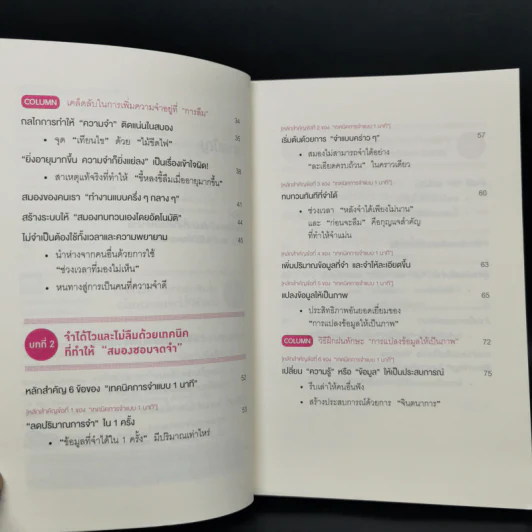 COLUMN เคล็ดลับในการเพิ่มความจำอยู่ที่ "การลืม" 34
กลไกการทำให้ "ความจำ" ติดแน่นในสมอง 35
• จุด "เทียนไข" ด้วย "ไม้ขีดไฟ"
"ยิ่งอายุมากขึ้น ความจำก็ยิ่งแย่ลง" เป็นเรื่องเข้าใจผิด! 38
• สาเหตุแท้จริงที่ทำให้ "ขี้หลงขี้ลืมเมื่ออายุมากขึ้น"
สมองของคนเรา "ทำงานแบบครึ่ง ๆ กลาง ๆ" 42
สร้างระบบให้ "สมองทบทวนเองโดยอัตโนมัติ" 44
ไม่จำเป็นต้องใช้ทั้งเวลาและความพยายาม 45
• นำห่างจากคนอื่นด้วยการใช้
"ช่วงเวลาที่มองไม่เห็น"
• หนทางสู่การเป็นคนที่ความจำดี
บทที่ 2 จำได้ไวและไม่ลืมด้วยเทคนิค
ที่ทำให้ "สมองชอบจดจำ"
หลักสำคัญ 6 ข้อของ "เทคนิคการจำแบบ 1 นาที" 52
[หลักสำคัญข้อที่ 1 ของ "เทคนิคการจำแบบ 1 นาที"]
"ลดปริมาณการจำ" ใน 1 ครั้ง 53
• "ข้อมูลที่จำได้ใน 1 ครั้ง" มีปริมาณเท่าไหร่
[หลักสำคัญข้อที่ 2 ของ "เทคนิคการจำแบบ 1 นาที"]
เริ่มต้นด้วยการ "จำแบบคร่าว ๆ" 57
• สมองไม่สามารถจำได้อย่าง
"ละเอียดครบถ้วน" ในคราวเดียว
[หลักสำคัญข้อที่ 3 ของ "เทคนิคการจำแบบ 1 นาที"]
ทบทวนทันทีที่จำได้ 60
• ช่วงเวลา "หลังจำได้เพียงไม่นาน"
และ "ก่อนจะลืม" คือกุญแจสำคัญ
ที่ทำให้จำแม่น
[หลักสำคัญข้อที่ 4 ของ "เทคนิคการจำแบบ 1 นาที"]
เพิ่มปริมาณข้อมูลที่จำ และจำให้ละเอียดขึ้น 63
[หลักสำคัญข้อที่ 5 ของ "เทคนิคการจำแบบ 1 นาที"]
แปลงข้อมูลให้เป็นภาพ 65
• ประสิทธิภาพอันยอดเยี่ยมของ
"การแปลงข้อมูลให้เป็นภาพ"
COLUMN วิธีฝึกฝนทักษะ "การแปลงข้อมูลให้เป็นภาพ" 72
[หลักสำคัญข้อที่ 6 ของ "เทคนิคการจำแบบ 1 นาที"]
เปลี่ยน "ความรู้" หรือ "ข้อมูล" ให้เป็นประสบการณ์ 75
• รีบเล่าให้คนอื่นฟัง
• สร้างประสบการณ์ด้วยการ "จินตนาการ"